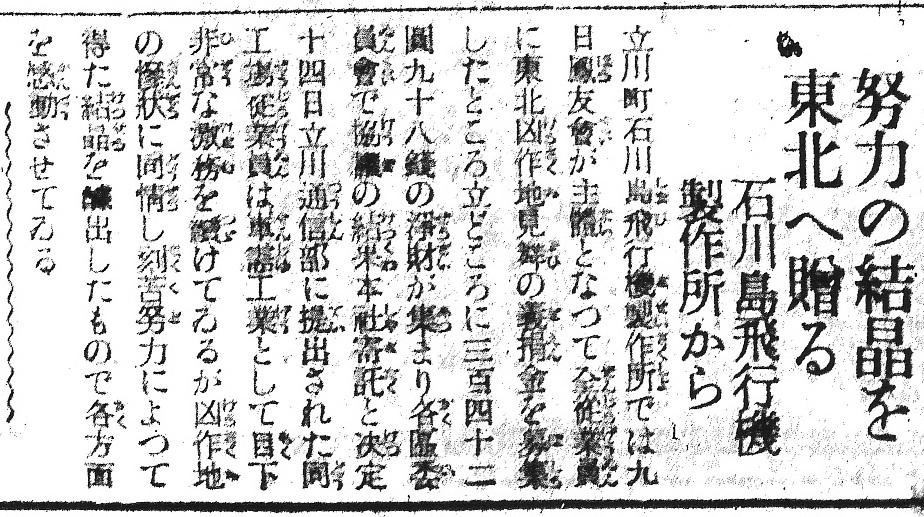 努力の結晶を
東北へ贈る
石川島飛行機
製作所から
立川町石川島飛行機製作所では九
日鳳友會が主體となつて全從業員
に東北凶作地見舞の義捐金を募集
したところ立どころに三百四十二
圓九十八錢の淨財が集まり各區委
員會で協議の結果本社寄託と決定
十四日立川通信部に提出された同
工場從業員は軍需工業として目下
非常な激務を續けてゐるが凶作地
の慘狀に同情し刻苦努力によつて
得た結晶を醵出したもので各方面
を感動させてゐる